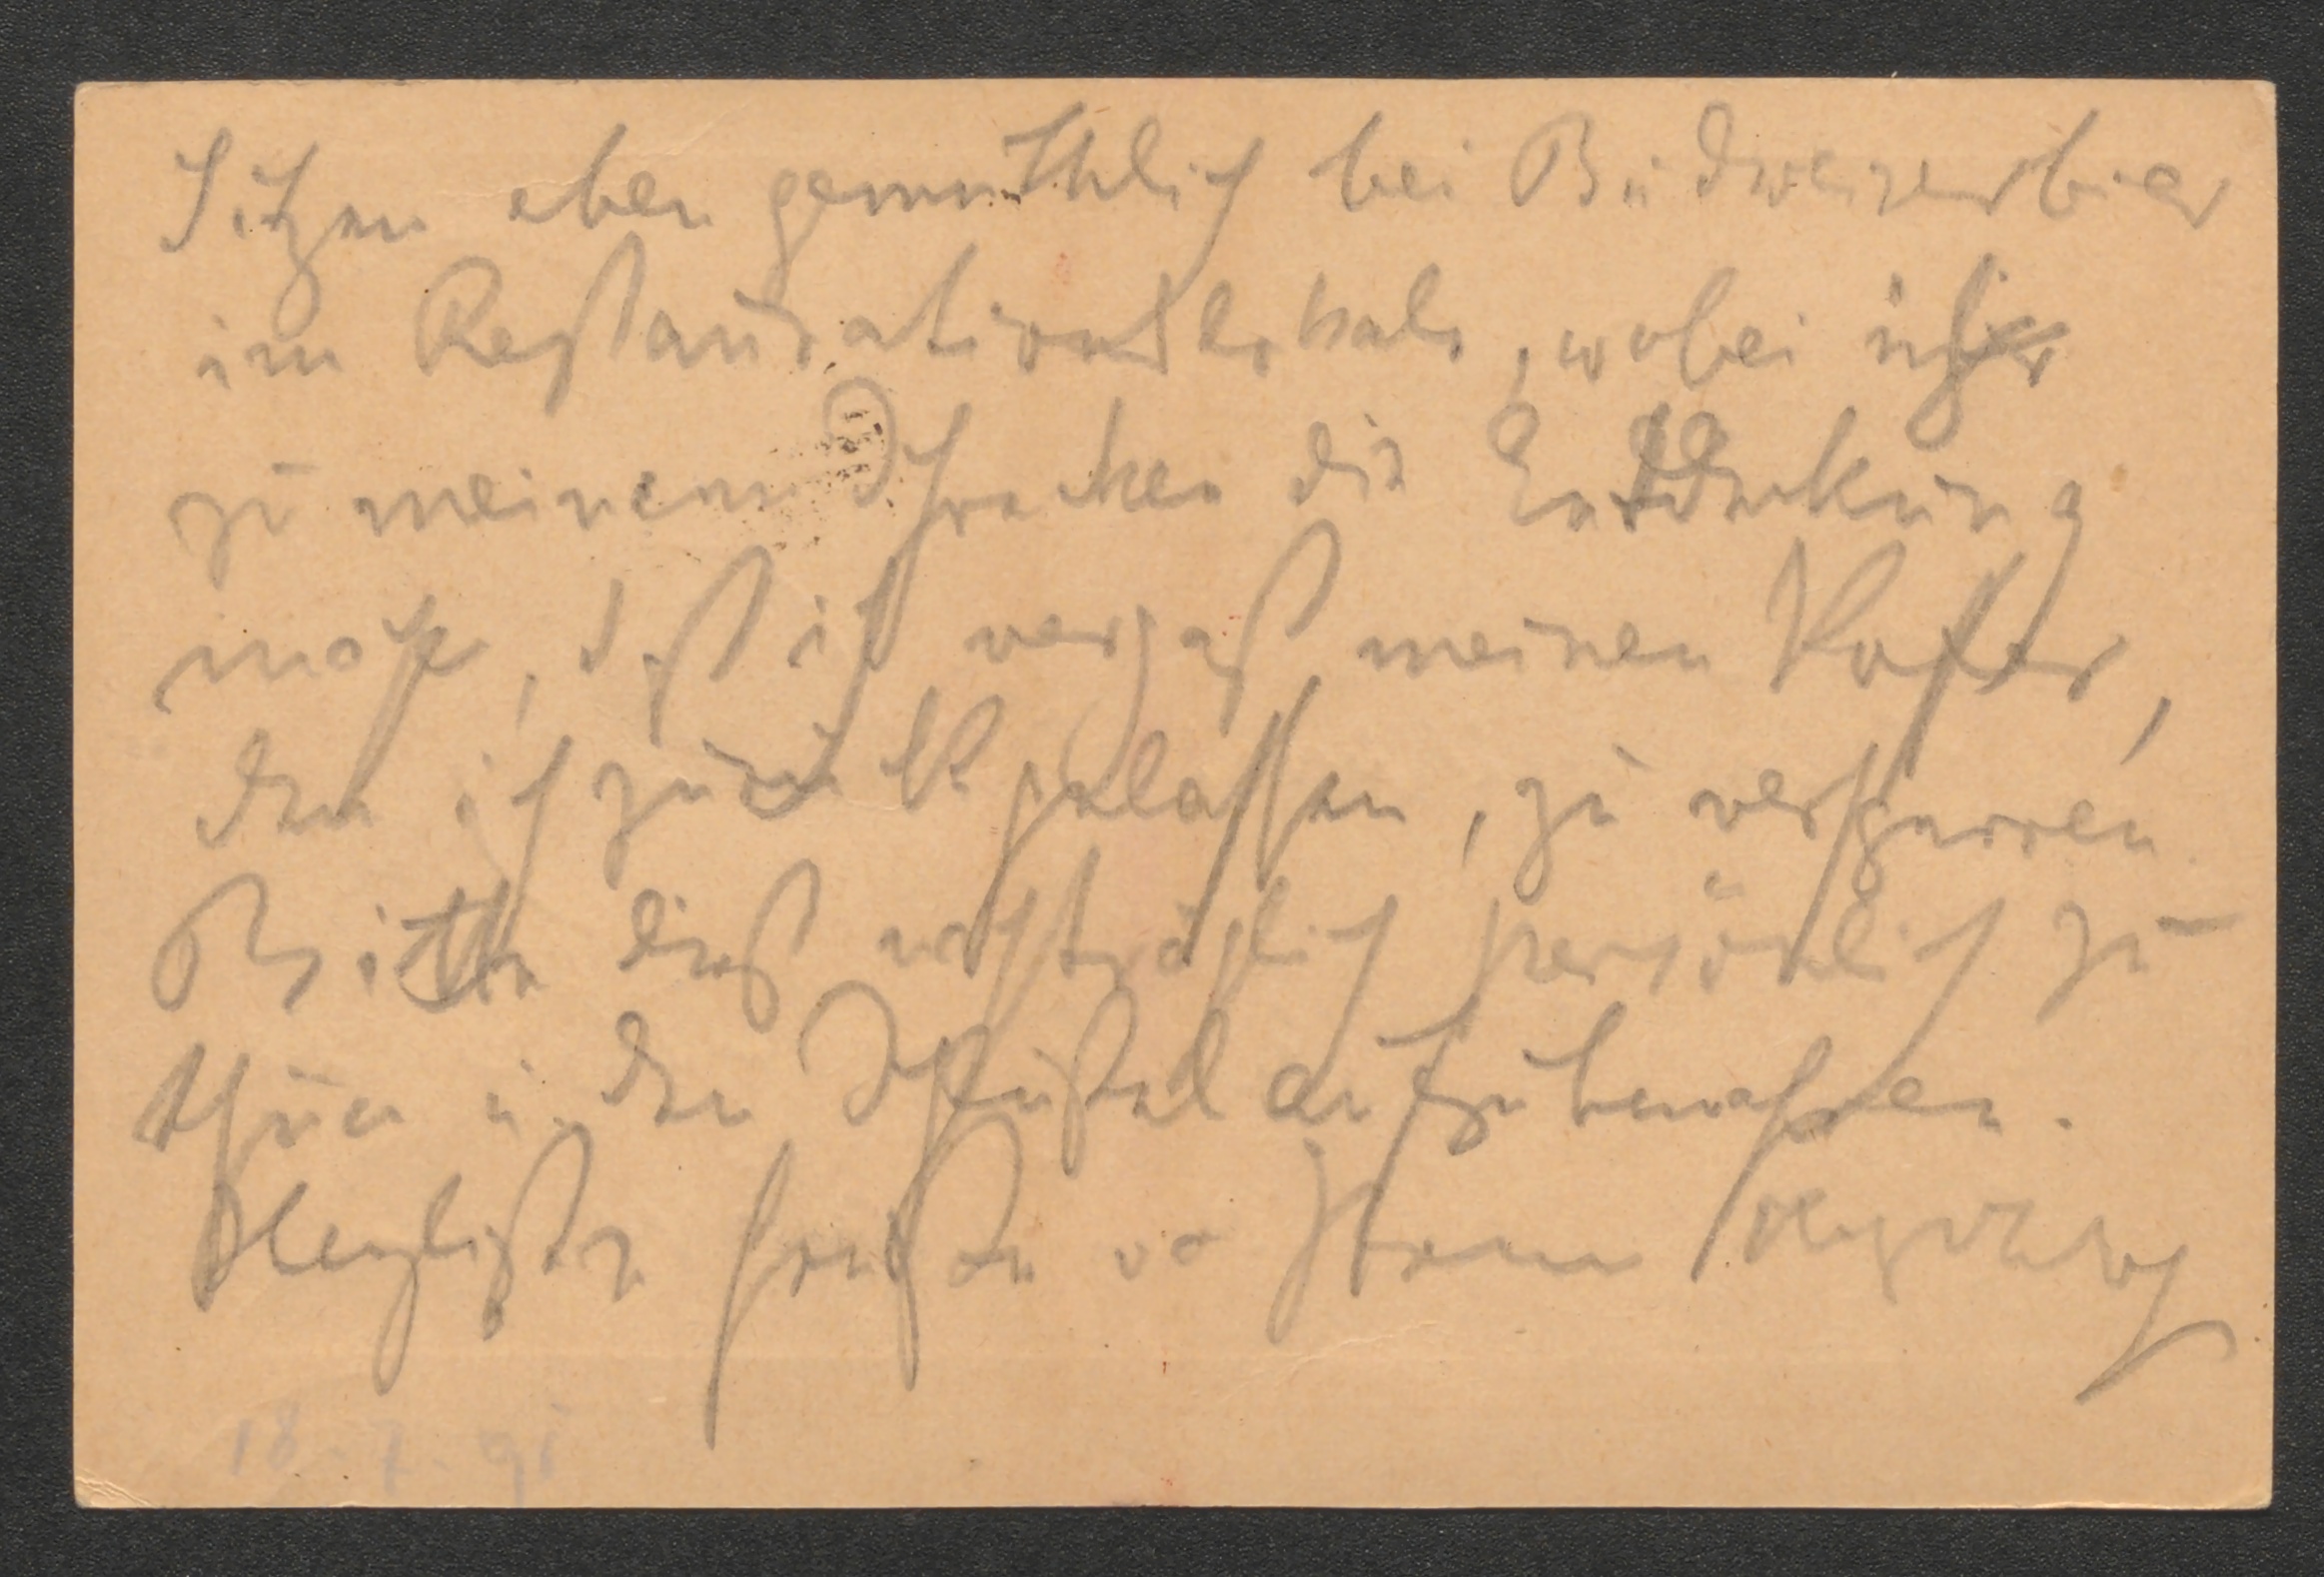 Sitzen eben gemüthlich bei Budweiserbier
im Restaurationslokale, wobei ich
zu meinem Schrecken die Entdeckung
mache, daß ich vergaß meinen Kofer,
den ich zurückgelassen, zu versperren.
Bitte dieß nachträglich persönlich zu
thun u. den Schlüßel aufzubewahren.
Herzlichste Grüße von Ihrem
18.7.91